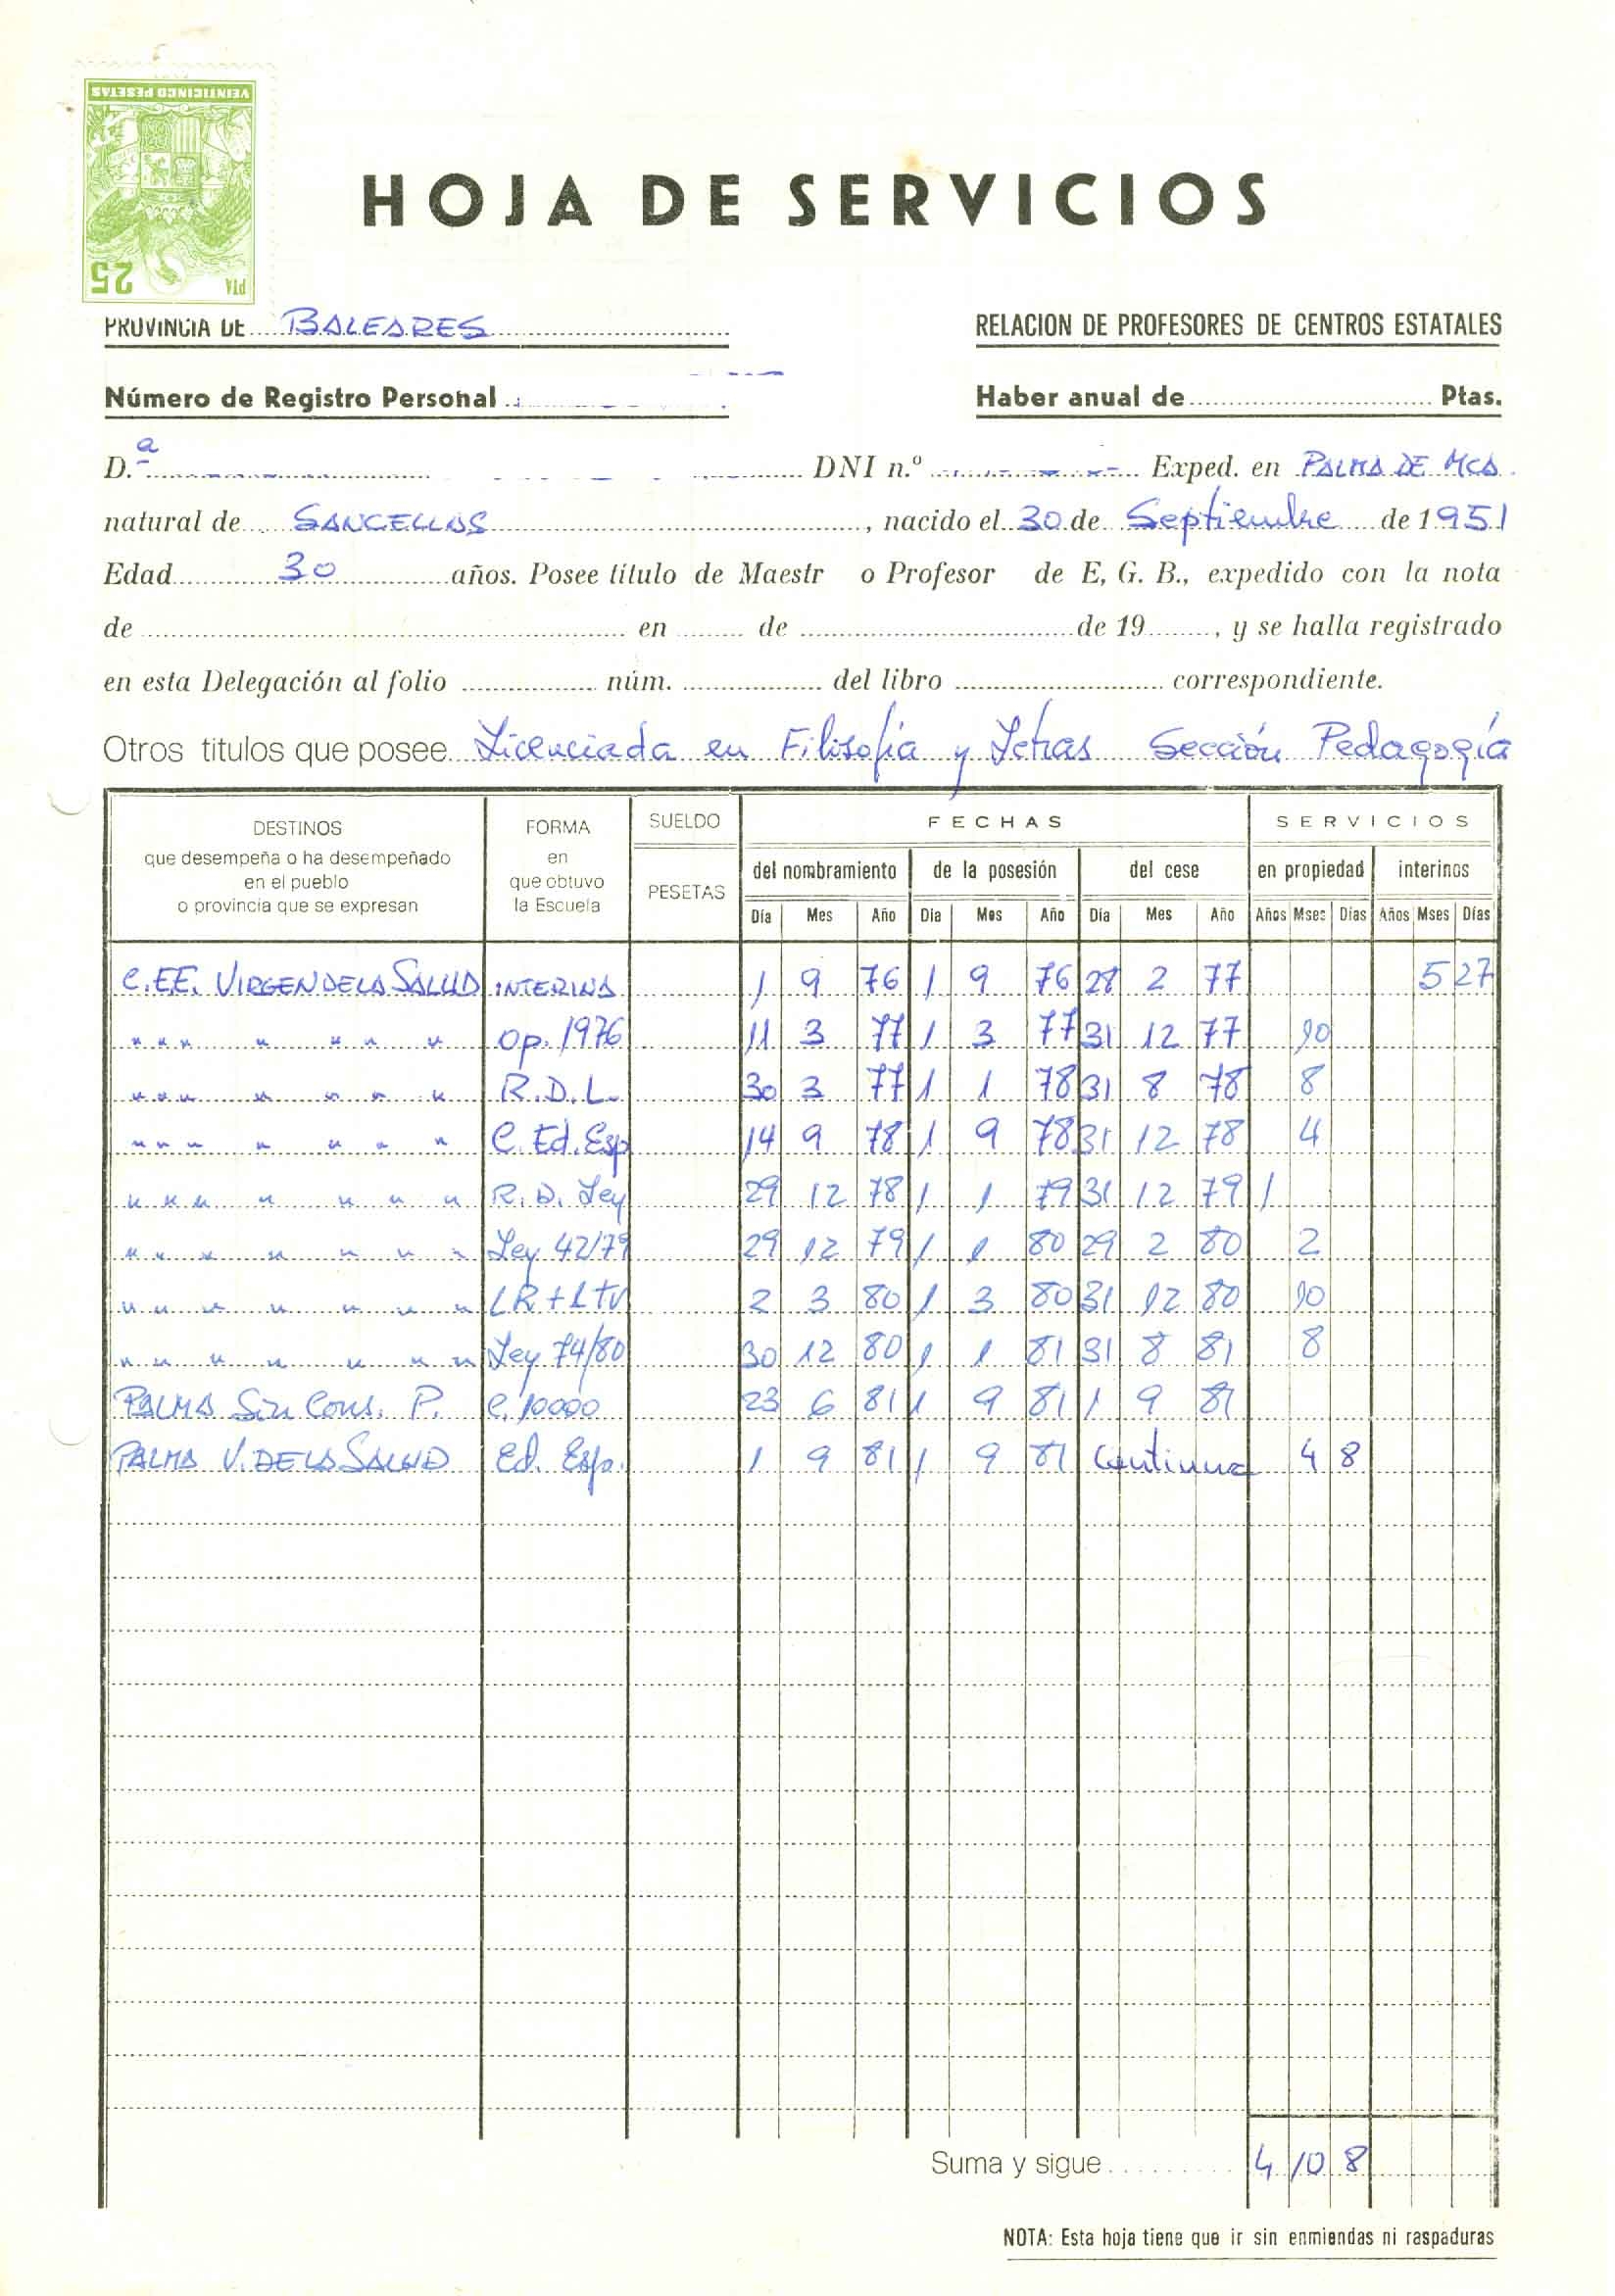 VEINTICINCO PESETAS
25 PTA
HOJA DE SERVICIOS
PROVINCIA DE BALEARES
RELACION DE PROFESORES DE CENTROS ESTATALES
Número de Registro Personal
Haber anual de Ptas.
D.ª DNI n.º Exped. en PALMA DE MCA
natural de SANCELLAS, nacido el 30 de Septiembre de 1951
Edad 30 años. Posee título de Maestr o Profesor de E, G. B., expedido con la nota
de en de de 19, y se halla registrado
en esta Delegación al folio núm. del libro correspondiente.
Otros titulos que posee Licenciada en Filosofía y Letras Sección Pedagogía
DESTINOS que desempeña o ha desempeñado en el pueblo o provincia que se expresan
FORMA en que obtuvo la Escuela
SUELDO PESETAS
FECHAS
SERVICIOS
del nombramiento de la posesión del cese en propiedad interinos
Día Mes Año Día Mes Año Día Mes Año Años Mses Días Años Mses Días
C.EE. VIRGEN DE LA SALUD INTERINA 1 9 76 1 9 76 28 2 77 5 27
" " " " " " " Op. 1976 11 3 77 1 3 77 31 12 77 10
" " " " " " " R.D.L. 30 3 77 1 1 78 31 8 78 8
" " " " " " " C. Ed. Esp 14 9 78 1 9 78 31 12 78 4
" " " " " " " R.D. Ley 29 12 78 1 1 79 31 12 79 1
" " " " " " " Ley 42/79 29 12 79 1 1 80 29 2 80 2
" " " " " " " LR+LTV 2 3 80 1 3 80 31 12 80 10
" " " " " " " Ley 74/80 30 12 80 1 1 81 31 8 81 8
PALMA Sin Cons. P. C. 10000 23 6 81 1 9 81 1 9 81
PALMA V. DE LA SALUD Ed. Esp. 1 9 81 1 9 81 Continua 4 8
Suma y sigue 4 10 8
NOTA: Esta hoja tiene que ir sin enmiendas ni raspaduras